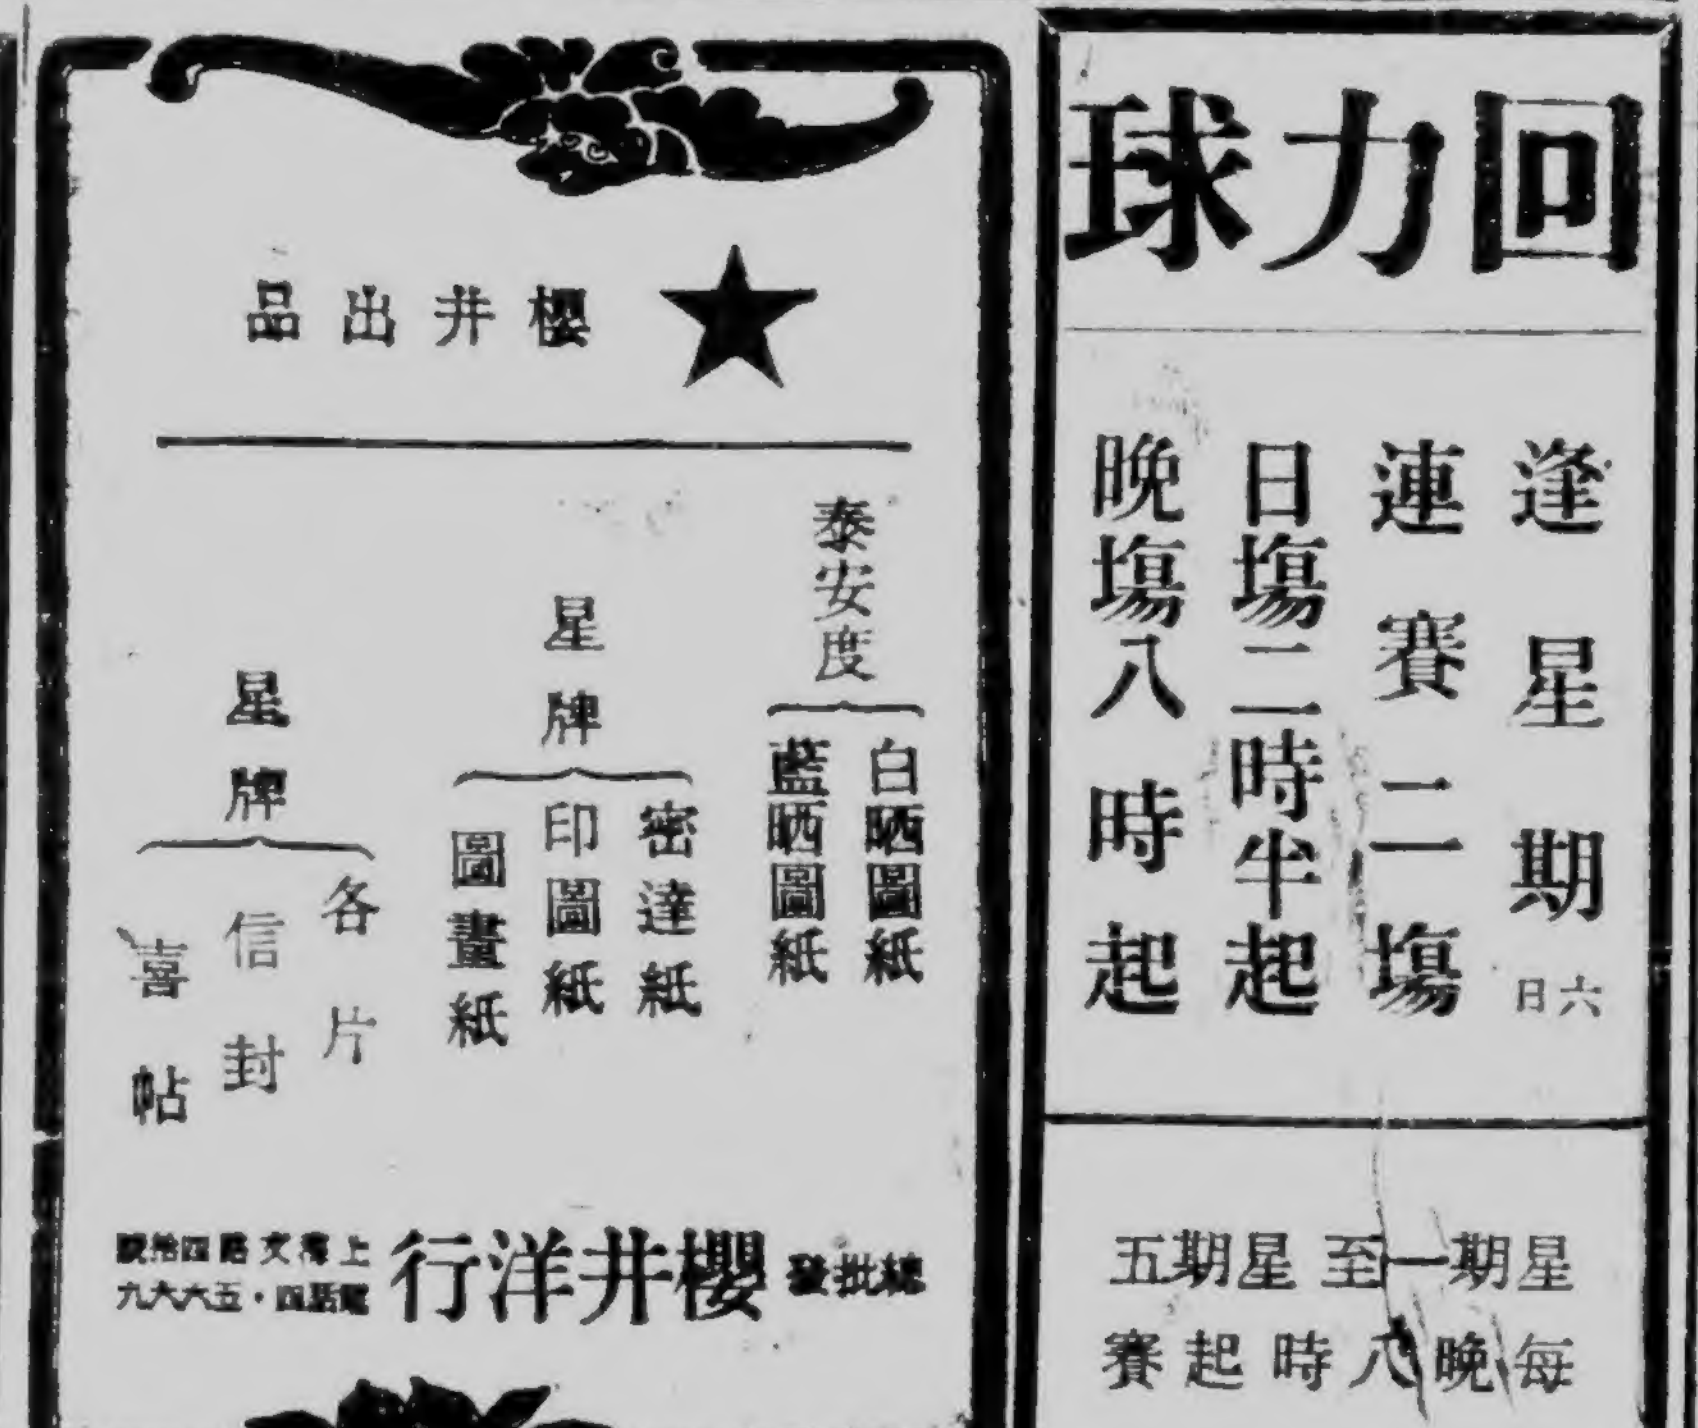 回力球
逢星期六日
連賽二場
日場二時半起
晚場八時起
星期一至星期五
每晚八時起賽
★櫻井出品
泰安度
白晒圖紙
藍晒圖紙
星牌
密達紙
印圖紙
圖畫紙
星牌
各片
信封
喜帖
總批發
櫻井洋行
上海文路四拾號
電話四·五六六九